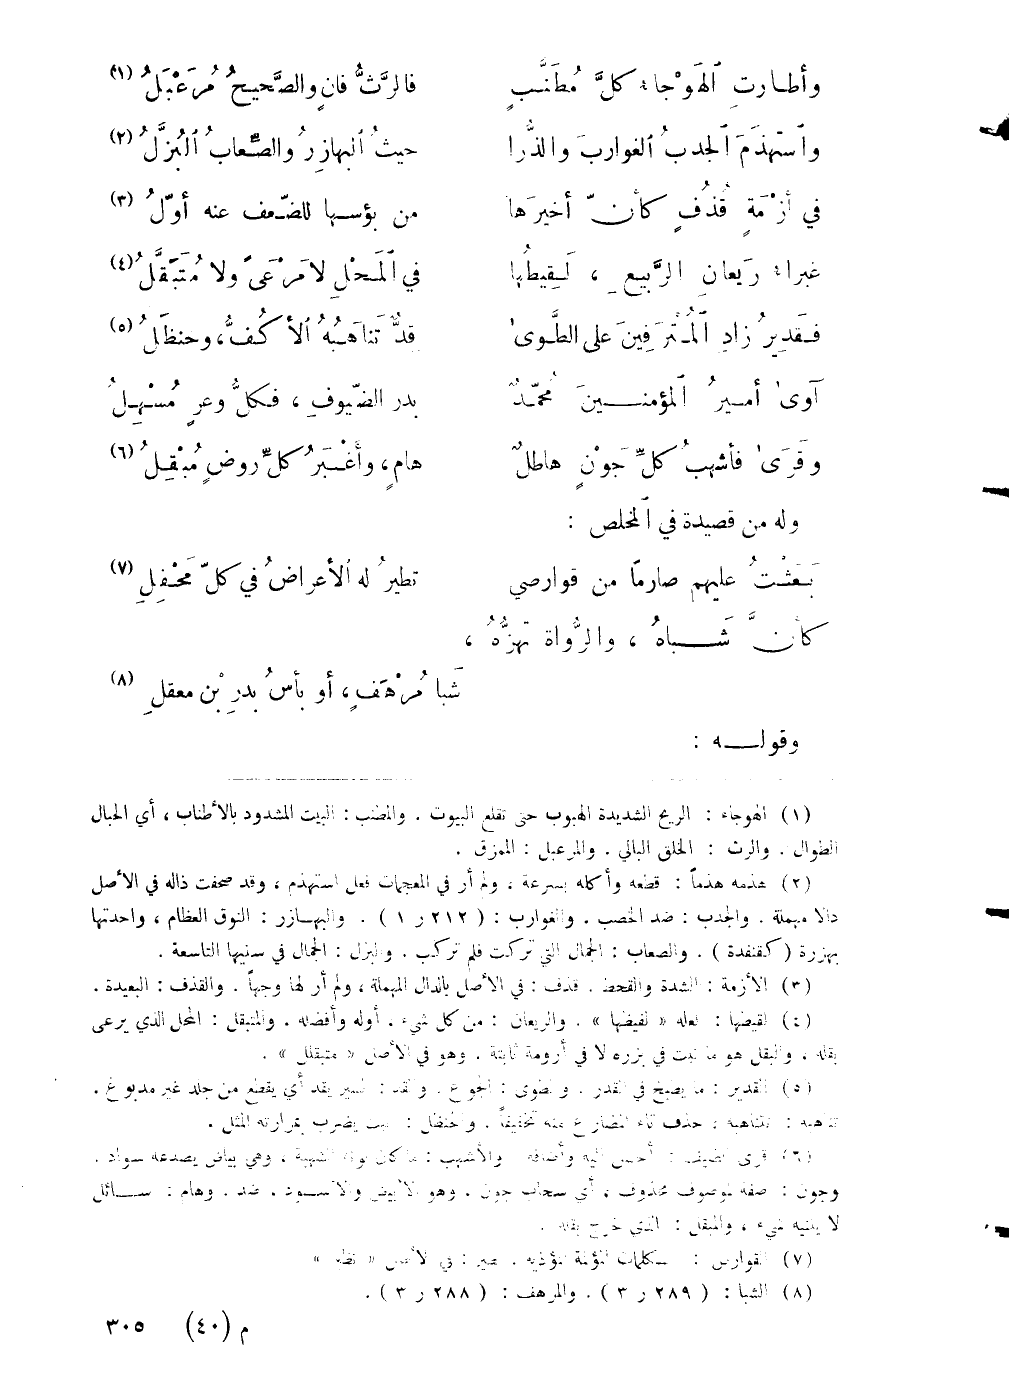 وأطارتِ ٱلهَوْجاءُ كلَّ مُطَنَّبٍ فالرَّثُّ فانٍ والصَّحيحُ مُرَعْبَلُ (١)
وٱستهذَمَ ٱلجدبُ ٱلغواربَ والذُّرا حيثُ ٱلبهازِرُ والصِّعابُ ٱلبُزَّلُ (٢)
في أزْمَةٍ قُذُفٍ كأنّ أخيرَها من بؤسها للضّعف عنه أوّلُ (٣)
غبراءُ رَيعانِ الرَّبيعِ ، لَقِيطُها في ٱلمَحْلِ لا مَرْعَىً ولا مُتَبَقَّلُ (٤)
فقديرُ زادِ ٱلمُترَفِينَ على الطَّوىٰ قِدٌّ تَناهَبُهُ ٱلأكُفُّ، وحنظَلُ (٥)
آوىٰ أميرُ ٱلمؤمنـين محمّدٌ بدر الضّيوفِ ، فكلُّ وعرٍ مُسْهِلُ
وقَرَىٰ فأشهبُ كلِّ جَوْنٍ هاطلٌ هامٍ، وأغْبَرُ كلِّ روضٍ مُبْقِلُ (٦)
وله من قصيدة في ٱلمخلص :
بَعَثْتُ عليهم صارمًا من قوارصي تطيرُ له ٱلأعراضُ في كلّ مَحْفِلِ (٧)
كأنَّ شَـباهُ ، والرُّواة تهزُّهُ ،
شَبا مُرْهَفٍ، أو بأسُ بدرِ بْن معقلِ (٨)
وقولـه :
(١) الهوجاء : الريح الشديدة الهبوب حتى تقلع البيوت . والمطنب : البيت المشدود بالأطناب ، أي الحبال
الطوال . والرث : الخلق البالي . والمرعبل : الممزق .
(٢) هذمه هذماً : قطعه وأكله بسرعة ، ولم أر في المعجمات فعل استهذم ، وقد صحفت ذاله في الأصل
دالا مهملة . والجدب : ضد الخصب . والغوارب : ( ٢١٢ ر ١ ) . والبهـازر : النوق العظام ، واحدتها
بهزرة ( كقنفدة ) . والصعاب : الجمال التي تركت فلم تركب . والبزل : الجمال في سنيها التاسعة .
(٣) الأزمة : الشدة والقحط . قذف : في الأصل بالدال المهملة ، ولم أر لها وجهاً . والقذف : البعيدة .
(٤) لقيضها : لعله « لفيضها » . والريعان : من كل شيء . أوله وأفضله . والمتبقل : المحل الذي يرعى
بقله ، والبقل هو ما نبت في بزره لا في أرومة ثابتة . وهو في الأصل « متبقلل » .
(٥) القدير : ما يصبخ في القدر . والطوى : الجوع . والقد : السير يقد أي يقطع من جلد غير مدبوغ .
تناهبه : تتناهبه ، حذف تاء المضارع منه تخفيفاً . والحنظل : نبت يضرب بمرارته المثل .
(٦) قرى الضيف : أحسن اليه وأضافه والأشهب : ما كان لونه الشهبة ، وهي بياض يصدعه سواد .
وجون : صفة لموصوف محذوف ، أي سحاب جون . وهو الأبيض والأسود . ضد . وهام : سـائل
لا يثنيه شيء ، والمبقل : الذي خرج بقله .
(٧) القوارس : الكلمات المؤلمة المؤذية . في الأصل
(٨) الشبا : ( ٢٨٩ ر ٣ ) . والمرهف : ( ٢٨٨ ر ٣ ) .
م (٤٠) ٣٠٥